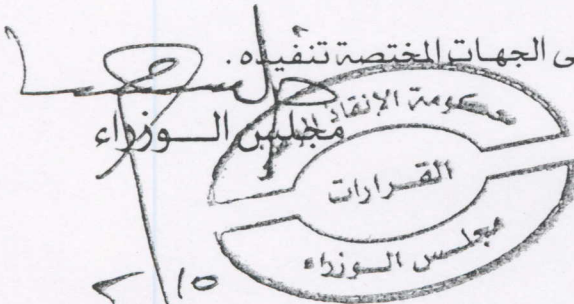 ى الجهات المختصة تنفيذه.
مجلس الــوزراء
حكومة الإنقاذ
القــرارات
مجلس الــوزراء